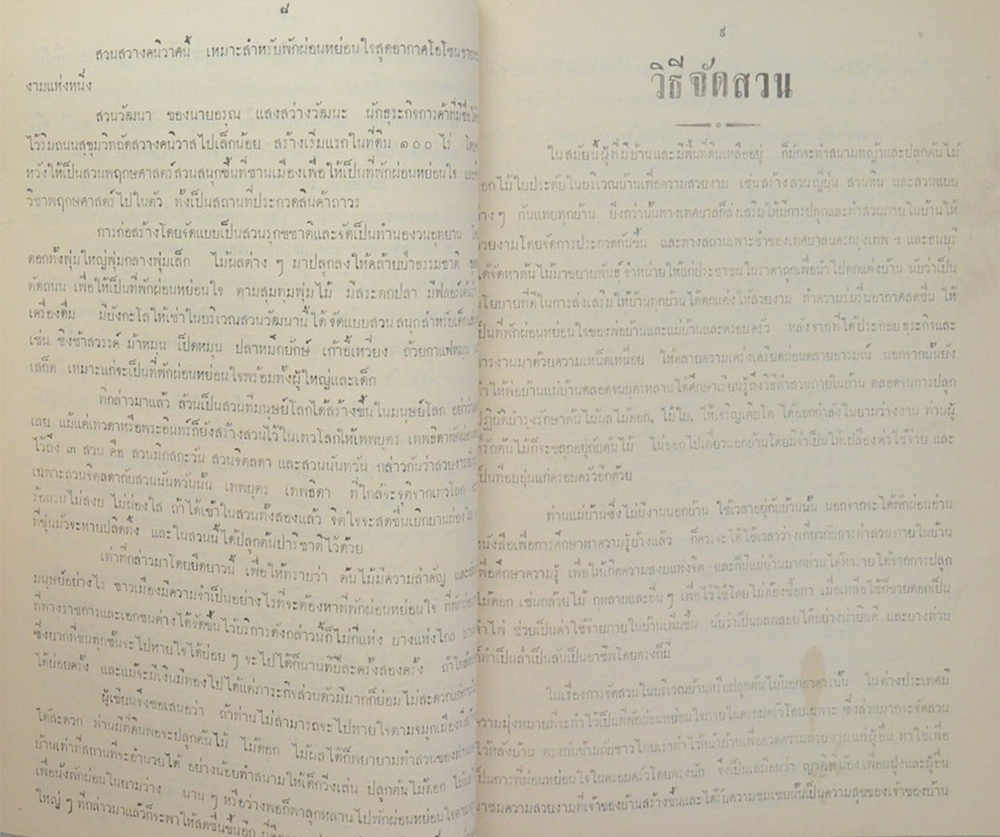 ๘
สวนสวางคนิวาศนี้ เหมาะสำหรับพักผ่อนหย่อนใจสุดอากาศโอโซน
งามแห่งหนึ่ง
สวนวัฒนา ของนายอรุณ แสงสว่างวัฒนะ นักธุระกิจการค้าที่มีชื่อ
ไว้ริมถนนสุขุมวิทถัดสวางคนิวาสไปเล็กน้อย สร้างเริ่มแรกในที่ดิน ๑๐๐ ไร่
หวังให้เป็นสวนพฤกษศาสตร์สวนสนุกขึ้นที่ชานเมืองเพื่อให้เป็นที่พักผ่อนหย่อนใจ
วิชาพฤกษศาสตร์ไปในตัว ทั้งเป็นสถานที่ประกวดสินค้าถาวร
การก่อสร้างโดยจัดแบบเป็นสวนรุกขชาติและจัดเป็นทำนองวนอุทยาน
ดอกทั้งพุ่มใหญ่พุ่มกลางพุ่มเล็ก ไม้ผลต่าง ๆ มาปลูกลงให้คล้ายป่าธรรมชาติ
ตัดถนน เพื่อให้เป็นที่พักผ่อนหย่อนใจ ตามสุมทุมพุ่มไม้ มีสระตกปลา
เครื่องดื่ม มีบังกะโลให้เช่าในบริเวณสวนวัฒนานี้ ได้จัดแบบสวนสนุกสำหรับเด็ก
เช่น ชิงช้าสวรรค์ ม้าหมุน เป็ดหมุน ปลาหมึกยักษ์ เก้าอี้เหวี่ยง ถ้วยกาแฟหมุน
เล็กด เหมาะแก่จะเป็นที่พักผ่อนหย่อนใจพร้อมทั้งผู้ใหญ่และเด็ก
ที่กล่าวมาแล้ว ล้วนเป็นสวนที่มนุษย์โลกได้สร้างขึ้นในมนุษย์โลก
เลย แม้แต่เทวดาหรือพระอินทร์ก็ยังสร้างสวนไว้ในเทวโลกให้เทพบุตร เทพธิดา
ไว้ถึง ๓ สวน คือ สวนมิกสกะวัน สวนจิตลดา และสวนนันทวัน กล่าวกันว่าสวน
เฉพาะสวนจิตลดากับสวนนันทวันนั้น เทพบุตร เทพธิดา ที่ใกล้จะจุติจากเทวโลก
ร้อนรนไม่สงบ ไม่ผ่องใส ถ้าได้เข้าในสวนทั้งสองแล้ว จิตใจจะสดชื่นเบิกบาน
ที่ขุ่นมัวจะหายปลิดทิ้ง และในสวนนี้ได้ปลูกต้นปาริชาติไว้ด้วย
เท่าที่กล่าวมาโดยยืดยาวนี้ เพื่อให้ทราบว่า ต้นไม้มีความสำคัญ
มนุษย์อย่างไร ชาวเมืองมีความจำเป็นอย่างไรที่จะต้องหาที่พักผ่อนหย่อนใจ
ที่ทางราชการและเอกชนต่างได้จัดขึ้นไว้บริการดังกล่าวนี้ก็ไม่กี่แห่ง บางแห่งไกล
ซึ่งยากที่ชนทุกชั้นจะไปหายใจได้บ่อย ๆ จะไปได้ก็นานทีปีละครั้งสองครั้ง
ได้บ่อยครั้ง และแม้จะมีเงินมีทองไปได้แต่ภาระกิจส่วนตัวมีมากก็ย่อมไม่สะดวก
ผู้เขียนจึงขอเสนอว่า ถ้าท่านไม่สามารถจะไปหายใจตามจมูกเมือง
ได้สะดวก ท่านมีที่ดินพอจะปลูกต้นไม้ ไม้ดอก ไม้ผลได้ก็พยายามทำสวน
บ้านเท่าที่สถานที่จะอำนวยได้ อย่างน้อยทำสนามให้เด็กวิ่งเล่น ปลูกต้นไม้ดอก
เพื่อนั่งพักผ่อนในยามว่าง นาน ๆ หรือว่างพอก็พาลูกหลานไปพักผ่อนหย่อนใจ
ใหญ่ ๆ ที่กล่าวมาแล้วก็จะพาให้สดชื่นขึ้นอีก
๙
วิธีจัดสวน
ในสมัยนี้ผู้ที่มีบ้านและมีพื้นที่ดินเหลืออยู่ ก็มักจะทำสนามหญ้าและปลูกต้นไม้
ดอกไม้ใบประดับในบริเวณบ้านเพื่อความสวยงาม เช่นสร้างสวนญี่ปุ่น สวนหิน และสวนแบบ
ต่าง ๆ กันแทบทุกบ้าน ยิ่งกว่านั้นทางเทศบาลก็ส่งเสริมให้มีการปลูกและทำสวนภายในบ้านให้
สวยงามโดยจัดการประกวดกันขึ้น และทางสถานเพาะชำของเทศบาลนครกรุงเทพ ฯ และธนบุรี
ได้จัดหาต้นไม้มาขยายพันธุ์ จำหน่ายให้แก่ประชาชนในราคาถูกเพื่อนำไปตกแต่งบ้าน นับว่าเป็น
นโยบายที่ดีในการส่งเสริมให้บ้านทุกบ้านได้ตกแต่งให้สวยงาม ทำความร่มรื่นอากาศสดชื่น ให้
เป็นที่พักผ่อนหย่อนใจของพ่อบ้านและแม่บ้านและครอบครัว หลังจากที่ได้ประกอบธุระกิจและ
การงานมาด้วยความเหน็ดเหนื่อย ให้คลายความเคร่งเครียดผ่อนคลายอารมณ์ นอกจากนั้นยัง
ทำให้พ่อบ้านแม่บ้านตลอดจนบุตรหลานได้ศึกษาเรียนรู้ถึงวิธีทำสวนภายในบ้าน ตลอดจนการปลูก
ปฏิบัติบำรุงรักษาต้นไม้ผลไม้ดอก, ไม้ใบ, ให้เจริญเติบโต ได้ออกกำลังในยามว่างงาน ท่านผู้
รักต้นไม้ก็จะขลุกอยู่กับต้นไม้ ไม่ออกไปเที่ยวนอกบ้านโดยมิจำเป็นให้เปลืองค่าใช้จ่าย และ
เป็นที่อบอุ่นแก่ครอบครัวอีกด้วย
ท่านแม่บ้านซึ่งไม่มีงานนอกบ้าน ใช้เวลาอยู่กับบ้านนั้น นอกจากจะได้พักผ่อนอ่าน
หนังสือเพื่อการศึกษาหาความรู้บ้างแล้ว ก็ควรจะได้ใช้เวลาว่างเกี่ยวกับการทำสวนภายในบ้าน
เพื่อศึกษาความรู้ เพื่อให้เกิดความสงบแห่งจิต และก็มีแม่บ้านมากท่านได้ทำรายได้จากการปลูก
ไม้ดอก เช่นกล้วยไม้ กุหลาบและอื่นๆ เพื่อไว้ใช้โดยไม่ต้องซื้อหา เมื่อเหลือใช้ก็ขายดอกเป็น
กำไร ช่วยเป็นค่าใช้จ่ายภายในบ้านเพิ่มขึ้น นับว่าเป็นผลพลอยได้อย่างน่ายินดี และบางท่าน
ก็ทำเป็นล่ำเป็นสันเป็นอาชีพโดยตรงก็มี
ในเรื่องการจัดสวนในบริเวณบ้านหรือปลูกต้นไม้นอกอาคารนั้น ในต่างประเทศมี
ความมุ่งหมายที่จะทำไว้เป็นที่พักผ่อนหย่อนใจภายในครอบครัวโดยเฉพาะ ซึ่งส่วนมากจะจัดสวน
ไว้หลังบ้าน ตรงกันข้ามกับชาวไทยเราทำไว้หน้าบ้านเพื่ออวดความสวยงามแก่ผู้อื่น หาใช่เพื่อ
เป็นการพักผ่อนหย่อนใจในครอบครัวโดยตรงนัก จึงเป็นเสมือนว่า ญาติพี่น้องเพื่อนฝูงและผู้อื่น
มาชมความสวยงามที่เจ้าของบ้านสร้างขึ้นและได้รับความชมเชยนั้นเป็นความสุขของเจ้าของบ้าน